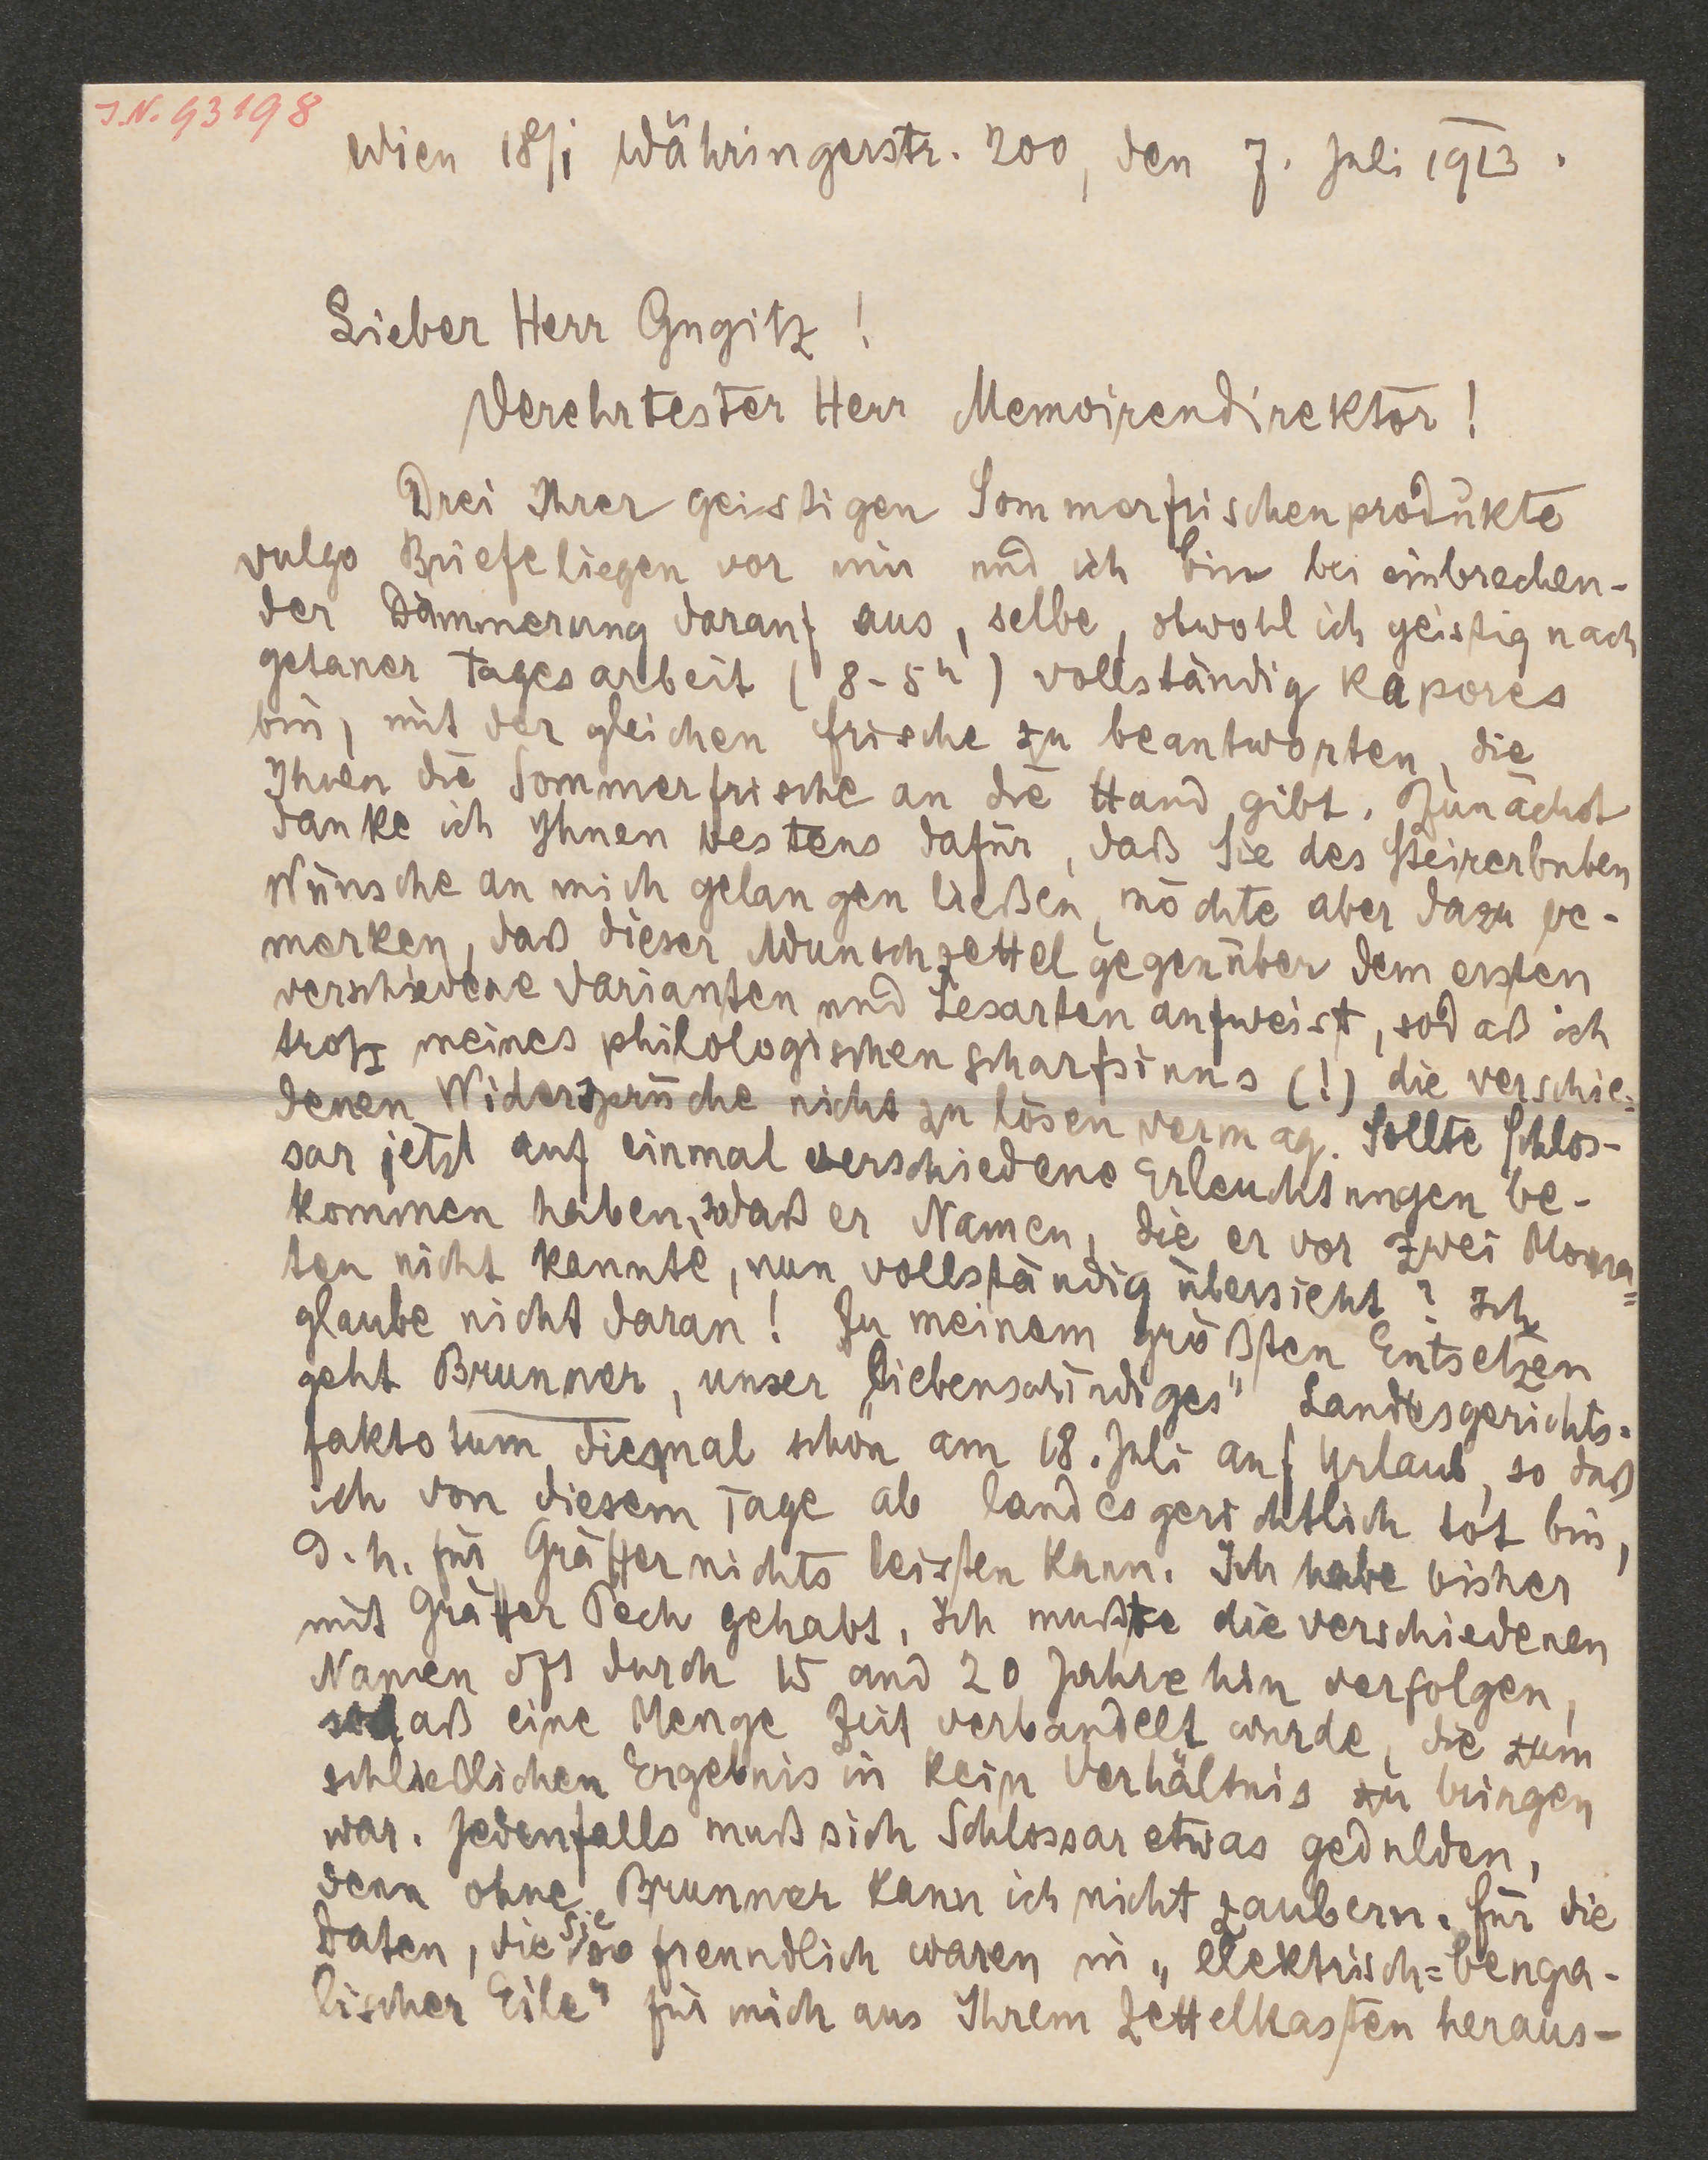 J.N. 93198
Wien 18/1 Währingerstr. 200, den 7. Juli 1913.
Lieber Herr Gugitz!
Verehrtester Herr Memoirendirektor!
Drei Ihrer geistigen Sommerfrischenprodukte
vulgo Briefe liegen vor mir und ich bin bei einbrechen-
der Dämmerung darauf aus, selbe, obwohl ich geistig nach
getaner Tagesarbeit (8-5h) vollständig kapores
bin, mit der gleichen Frische zu beantworten, die
Ihnen die Sommerfrische an die Hand gibt. Zunächst
danke ich Ihnen bestens dafür, daß Sie des Steirerbuben
Wünsche an mich gelangen ließen, möchte aber dazu be-
merken, daß dieser Wunschzettel gegenüber dem ersten
verschiedene Varianten und Lesarten aufweist, sodaß ich
trotz meines philologischen Scharfsinns (!) die verschie=
denen Widersprüche nicht zu lösen vermag. Sollte Schlos-
sar jetzt auf einmal verschiedene Erleuchtungen be-
kommen haben, sodaß er Namen, die er vor zwei Mona=
ten nicht kannte, nun vollständig übersieht? Ich
glaube nicht daran! Zu meinem größten Entsetzen
geht Brunner, unser „liebenswürdiges" Landesgerichts-
faktotum diesmal schon am 18. Juli auf Urlaub, so daß
ich von diesem Tage ab landesgerichtlich tot bin,
d. h. für Gräffer nichts leisten kann. Ich habe bisher
mit Gräffer Pech gehabt, ich mußte die verschiedenen
Namen oft durch 15 und 20 Jahre hin verfolgen,
sodaß eine Menge Zeit verbandelt wurde, die zum
schließlichen Ergebnis in kein Verhältnis zu bringen
war. Jedenfalls muß sich Schlossar etwas gedulden,
denn ohne Brunner kann ich nicht zaubern. Für die
Daten, die Sie so freundlich waren in „elektrisch=benga-
lischer Eile" für mich aus Ihrem Zettelkasten heraus-